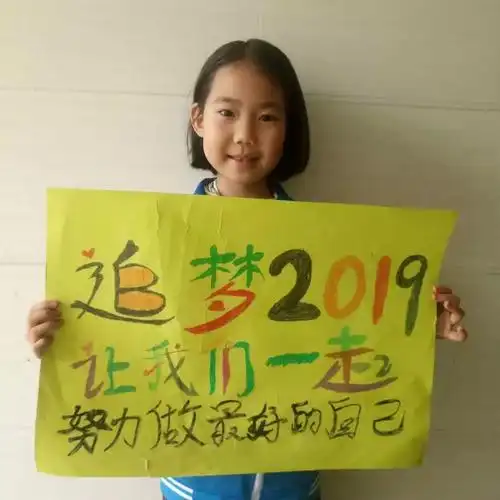 追梦2019
让我们一起
努力做最好的自己